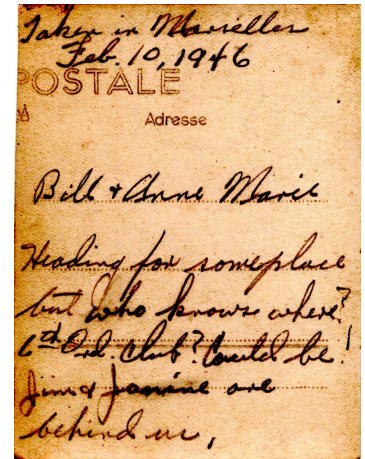 Taken in Marseilles
Feb. 10, 1946
POSTALE
Adresse
Bill + Anne Marie
Heading for someplace
but who knows where?
6th Ord. Club? Could be!
Jim & Janine are
behind us,